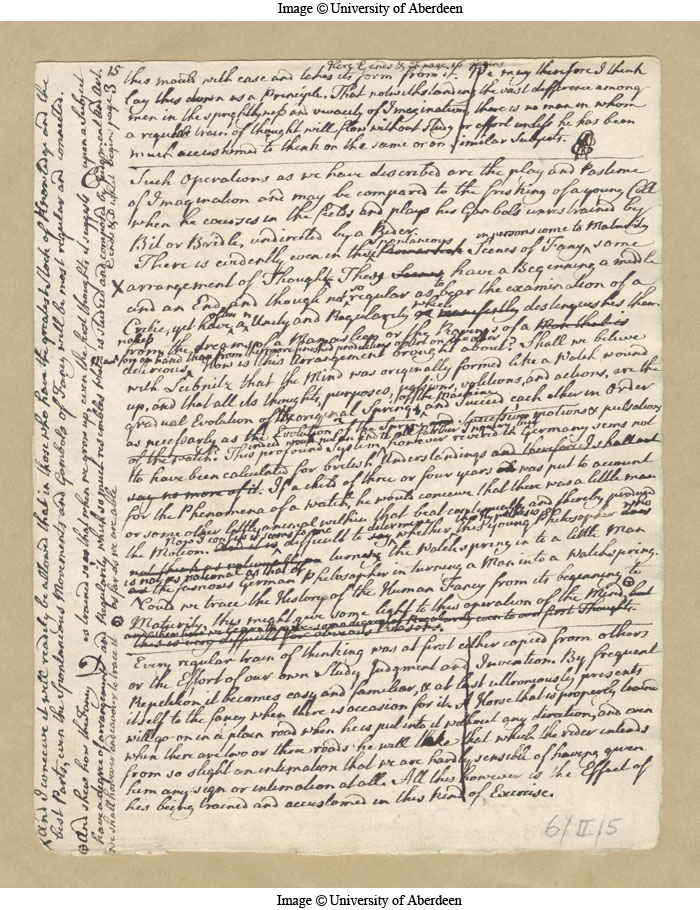 Image © University of Aberdeen
15
Here E ends & page 16 begins
this mould with ease and takes its form from it. We may therefore I think
lay this down as a Principle. That notwithstanding the vast difference among
men in the sprightliness and vivacity of Imagination, there is no man in whom
a regular train of thought will flow without Study or effort unless he has been
much accustomed to think on the same or on similar Subjects.
Such Operations as we have described are the play and Pastime
of Imagination and may be compared to the frisking of a young Colt
when he courses in the fields and plays his Gambols unrestrained by
Bit or Bridle, undirected by a Rider.
spontaneous in persons come to Maturity
There is evidently even in these Scenes of Fancy, some
X arrangement of Thought. These have a Beginning a middle
and an End, and though not so regular as to bear the examination of a
Critic, yet have often a Unity and Regularity which manifestly distinguishes them
from the dreams of a Man asleep or the Ravings of a
delirious. How is this Arrangement brought about? Shall we believe
with Leibnitz that the Mind was originally formed like a Watch wound
up, and that all its thoughts, purposes, passions, volitions, and actions, are the
of the machine
gradual Evolution of the original Spring, and succeed each other in Order
as necessarily as the motions & pulsations
of the watch. This profound System however revered in Germany seems not
to have been calculated for British Understandings and therefore I shall not
say no more of it. If a child of three or four years was put to account
for the Phenomena of a Watch, he would conceive that there was a little man
or some other little animal within that beat continually and thereby produced
the Motion. difficult to determine whether this young Philosopher
turning the Watch spring in to a little Man
is not as rational as that of
the famous German Philosopher in turning a Man into a Watch spring.
Coud we trace the History of the Human Fancy from its beginning to
Maturity, this might give some light to this operation of the Mind, but
this is very difficult for obvious Reasons.
Every regular train of thinking was at first either copied from others
or the Effort of our own Study Judgment and Invention. By frequent
Repetition it becomes easy and familiar, & at last ultroneously presents
itself to the fancy when there is occasion for it. A Horse that is properly trained
will go on in a plain road when he is put into it without any direction, and even
when there are two or three roads he will take that which the rider intends
from so slight an intimation that we are hardly sensible of having given
him any sign or intimation at all. All this however is the Effect of
his being trained and accustomed in this kind of Exercise.
X And I conceive it will readily be allowed that in those who have the greatest Stock of Knowledge and the
best Parts, even the Spontaneous Movements and Gambols of Fancy will be most regular and connected.
And shew how the Fancy is trained so that when we grow up even the first thoughts it suggests upon a Subject
have a degree of arrangement and Regularity which so much resembles what is studied and composed by Judgment and Art.
we shall however endeavour to trace it as far as we are able
E ends & D which begins page 3
6/II/5
Image © University of Aberdeen